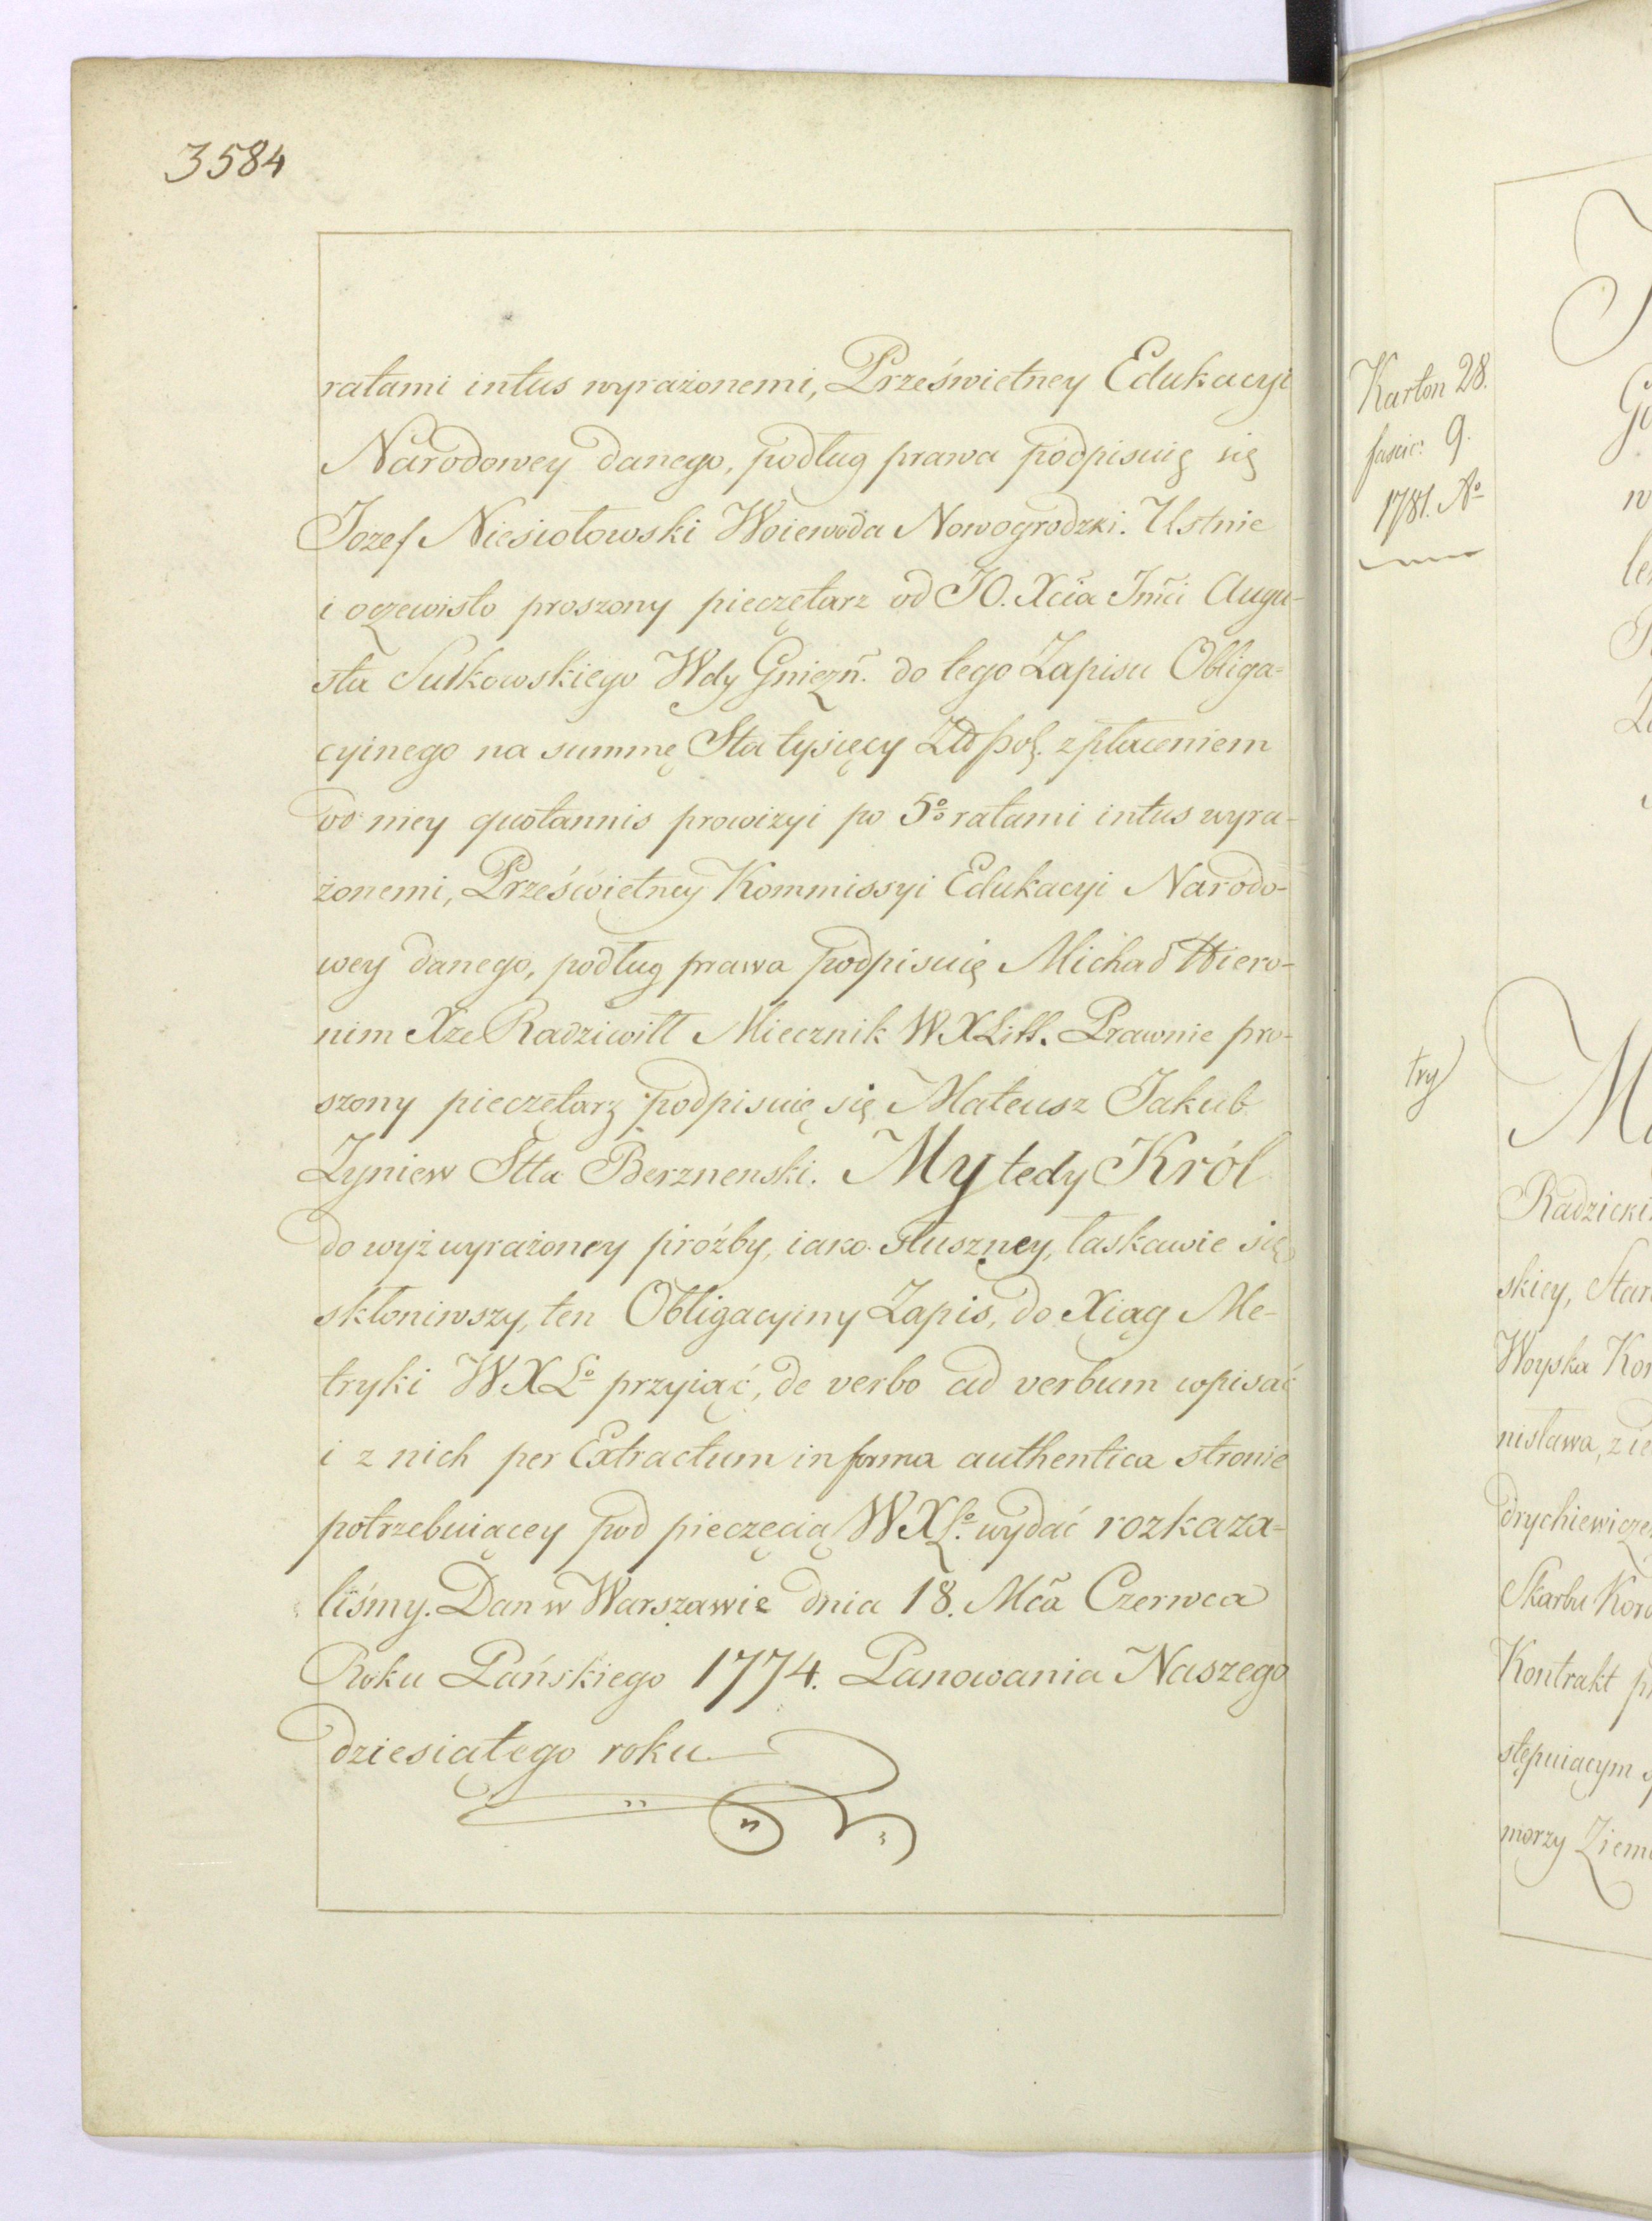 3584
ratami intus wyrażonemi, Prześwietney Edukacyi
Narodowey danego, podług prawa podpisuię się
Jozef Niesiołowski Woiewoda Nowogrodzki. Ustnie
i oczewisto proszony pieczętarz od JO. Xcia Jmci Augu-
sta Sułkowskiego Wdy Gniezñ. do tego Zapisu Obliga-
cyinego na summę Sta tysięcy Złł pol. z płaceniem
od niey quotannis prowizyi po 5% ratami intus wyra-
żonemi, Prześwietney Kommissyi Edukacyi Narodo-
wey danego, podług prawa podpisuię Michał Hiero-
nim Xże Radziwiłł Miecznik W X Litt. Prawnie pro-
szony pieczętarz podpisuię się Mateusz Jakub
Żyniew Stta Berznenski. My tedy Król
do wyż wyrażoney prózby, iako słuszney, łaskawie się
skłoniwszy, ten Obligacyiny Zapis, do Xiąg Me-
tryki W X Lº przyiąć, de verbo ad verbum wpisać
i z nich per Extractum in forma authentica stronie
potrzebuiącey pod pieczęcią W X Lº wydać rozkaza-
liśmy. Dan w Warszawie dnia 18. Mca Czerwca
Roku Pańskiego 1774. Panowania Naszego
dziesiątego roku
Karton 28.
fascic: 9.
1781. Nº
try
Radzicki
skiey, Star
Woyska Kor
nisława, z ie
drychiewicze
Skarbu Koro
Kontrakt pr
stępuiącym s
morzy Ziem